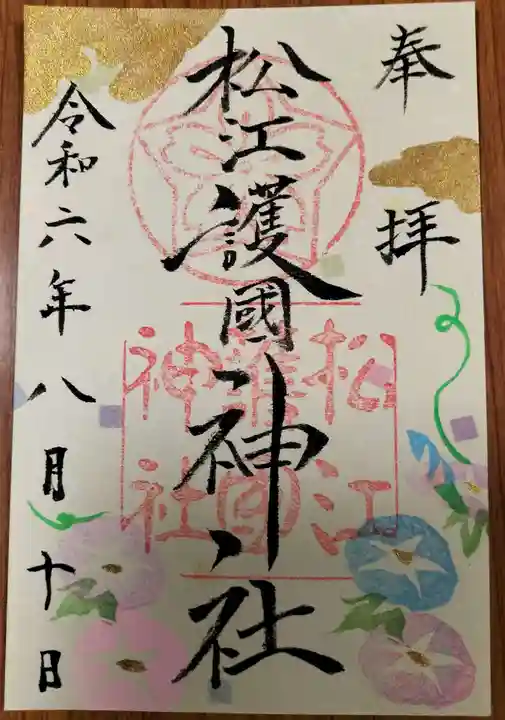 奉拝
松江護國神社
松江
護国
神社
令和六年八月十日